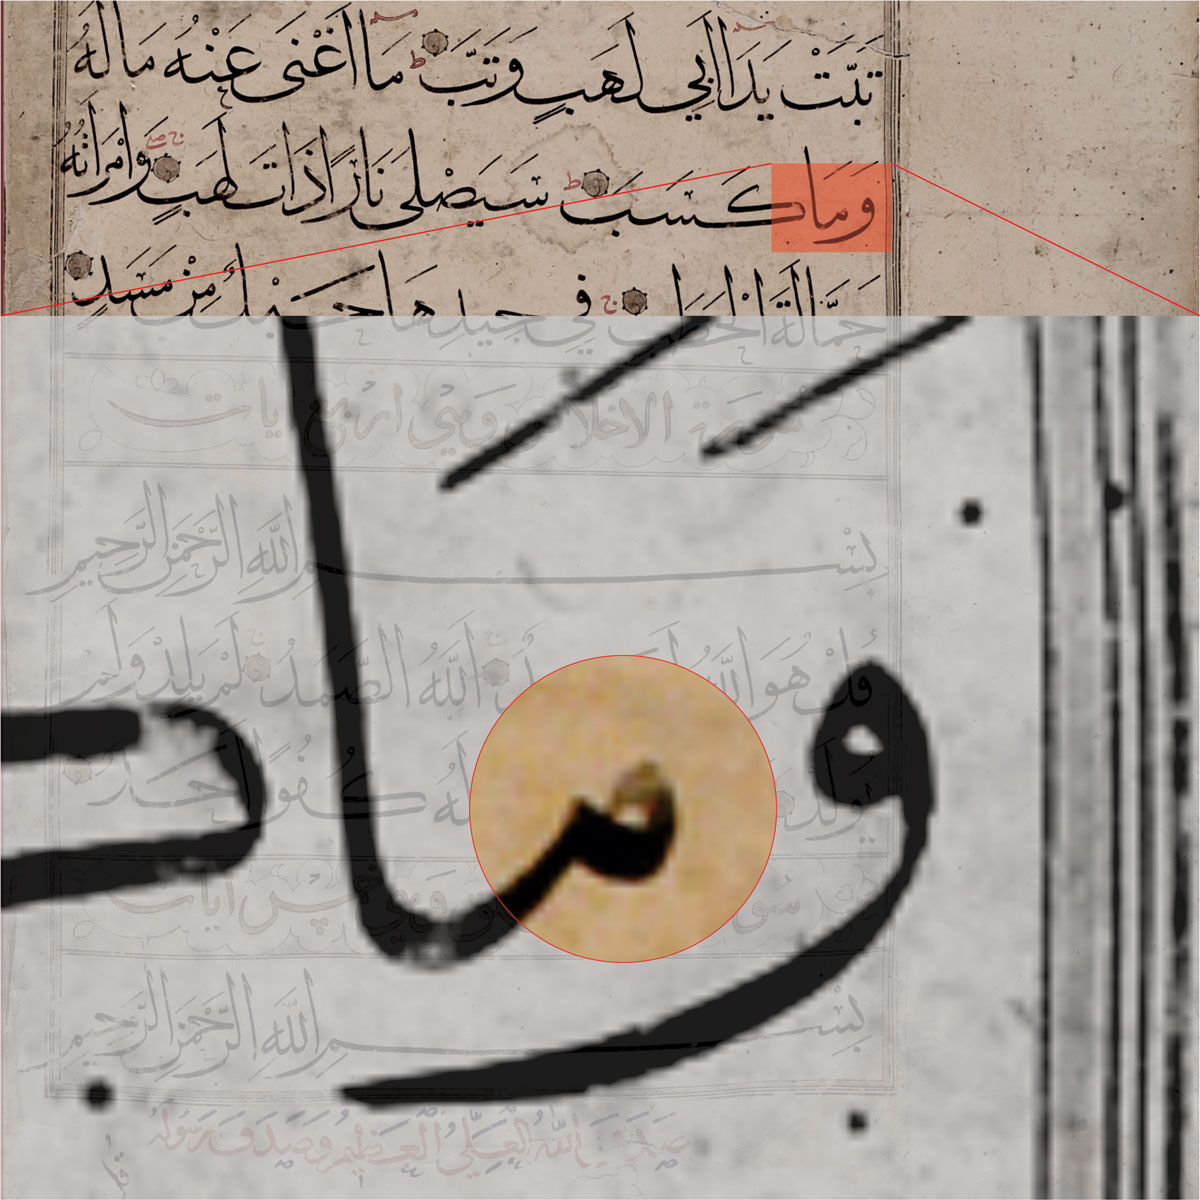 تَبَّتْ يَدَا اَبِي لَهَبٍ وَتَبَّ ط مَا اَغْنَى عَنْهُ مَالُهُ
وَمَا كَسَبَ ط سَيَصْلَى نَارًا ذَاتَ لَهَبٍ وَامْرَاَتُهُ
حَمَّالَةَ الْحَطَبِ ج فِي جِيدِهَا حَبْلٌ مِنْ مَسَدٍ
سورة الاخلاص وهي اربع ايات
بِسْمِ اللهِ الرَّحْمَنِ الرَّحِيمِ
قُلْ هُوَ اللهُ اَحَدٌ اَللهُ الصَّمَدُ لَمْ يَلِدْ وَلَمْ
يُولَدْ لَهُ كُفُوًا اَحَدٌ
خمس آيات
بِسْمِ اللهِ الرَّحْمَنِ الرَّحِيمِ
صدق الله العلي العظيم وصدق رسوله
وَمَا